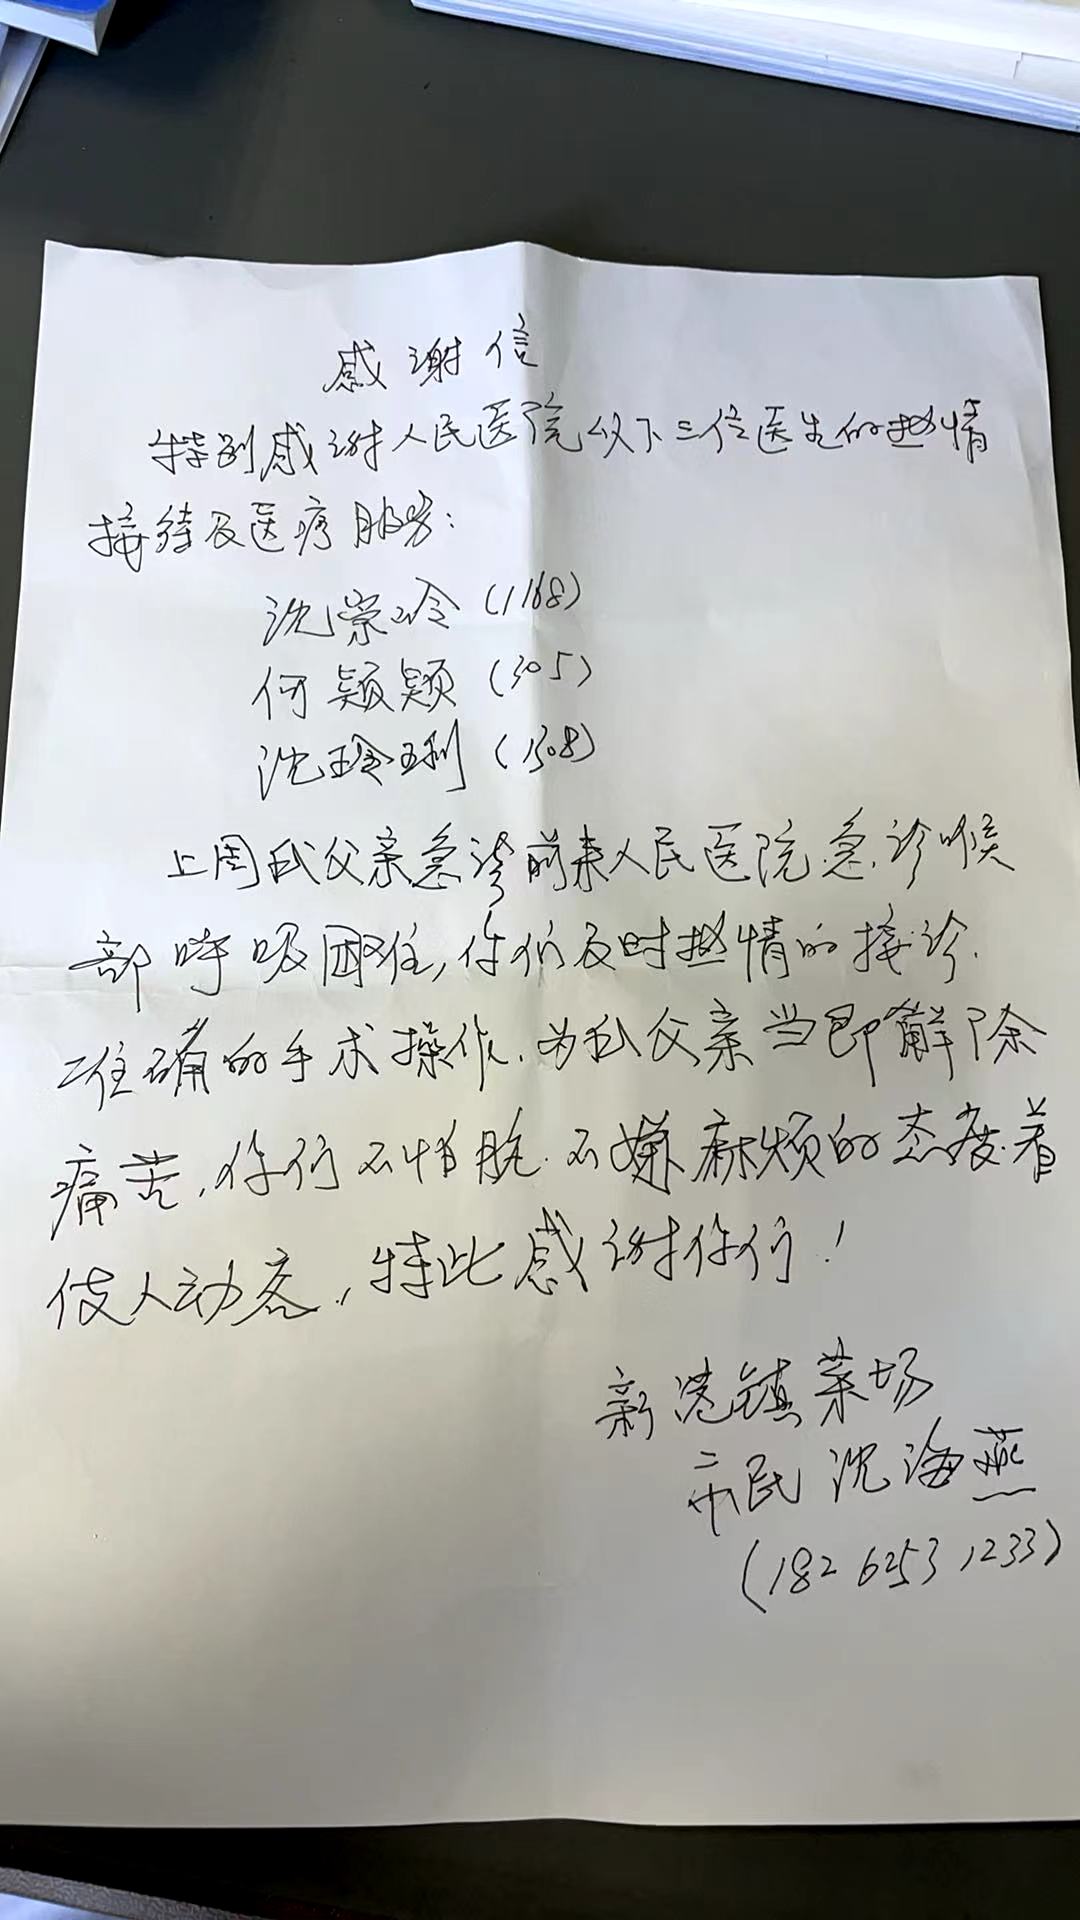 感谢信
特别感谢人民医院以下三位医生的热情
接待及医疗服务:
沈崇冷(1168)
何颖颖(305)
沈玲琍(1308)
上周我父亲急诊前来人民医院急诊喉
部呼吸困难,你们及时热情的接诊.
准确的手术操作.为我父亲当即解除
痛苦,你们不怕脏.不嫌麻烦的态度着
伎人动容,特此感谢你们!
新港镇菜场
市民沈海燕
(182 6253 1233)